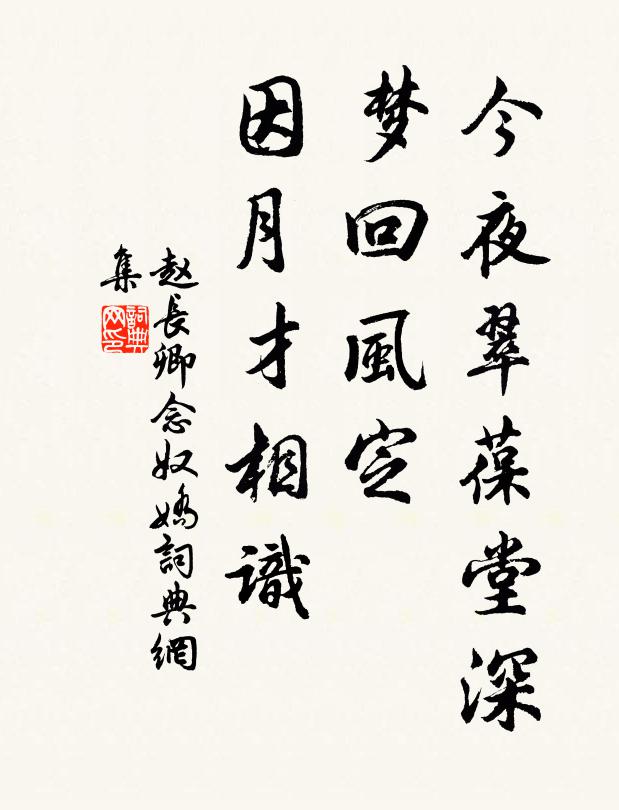 今夜翠葆堂深
梦回風定
因月才相識
赵長卿念奴嬌詞典網
集
詞典
网印